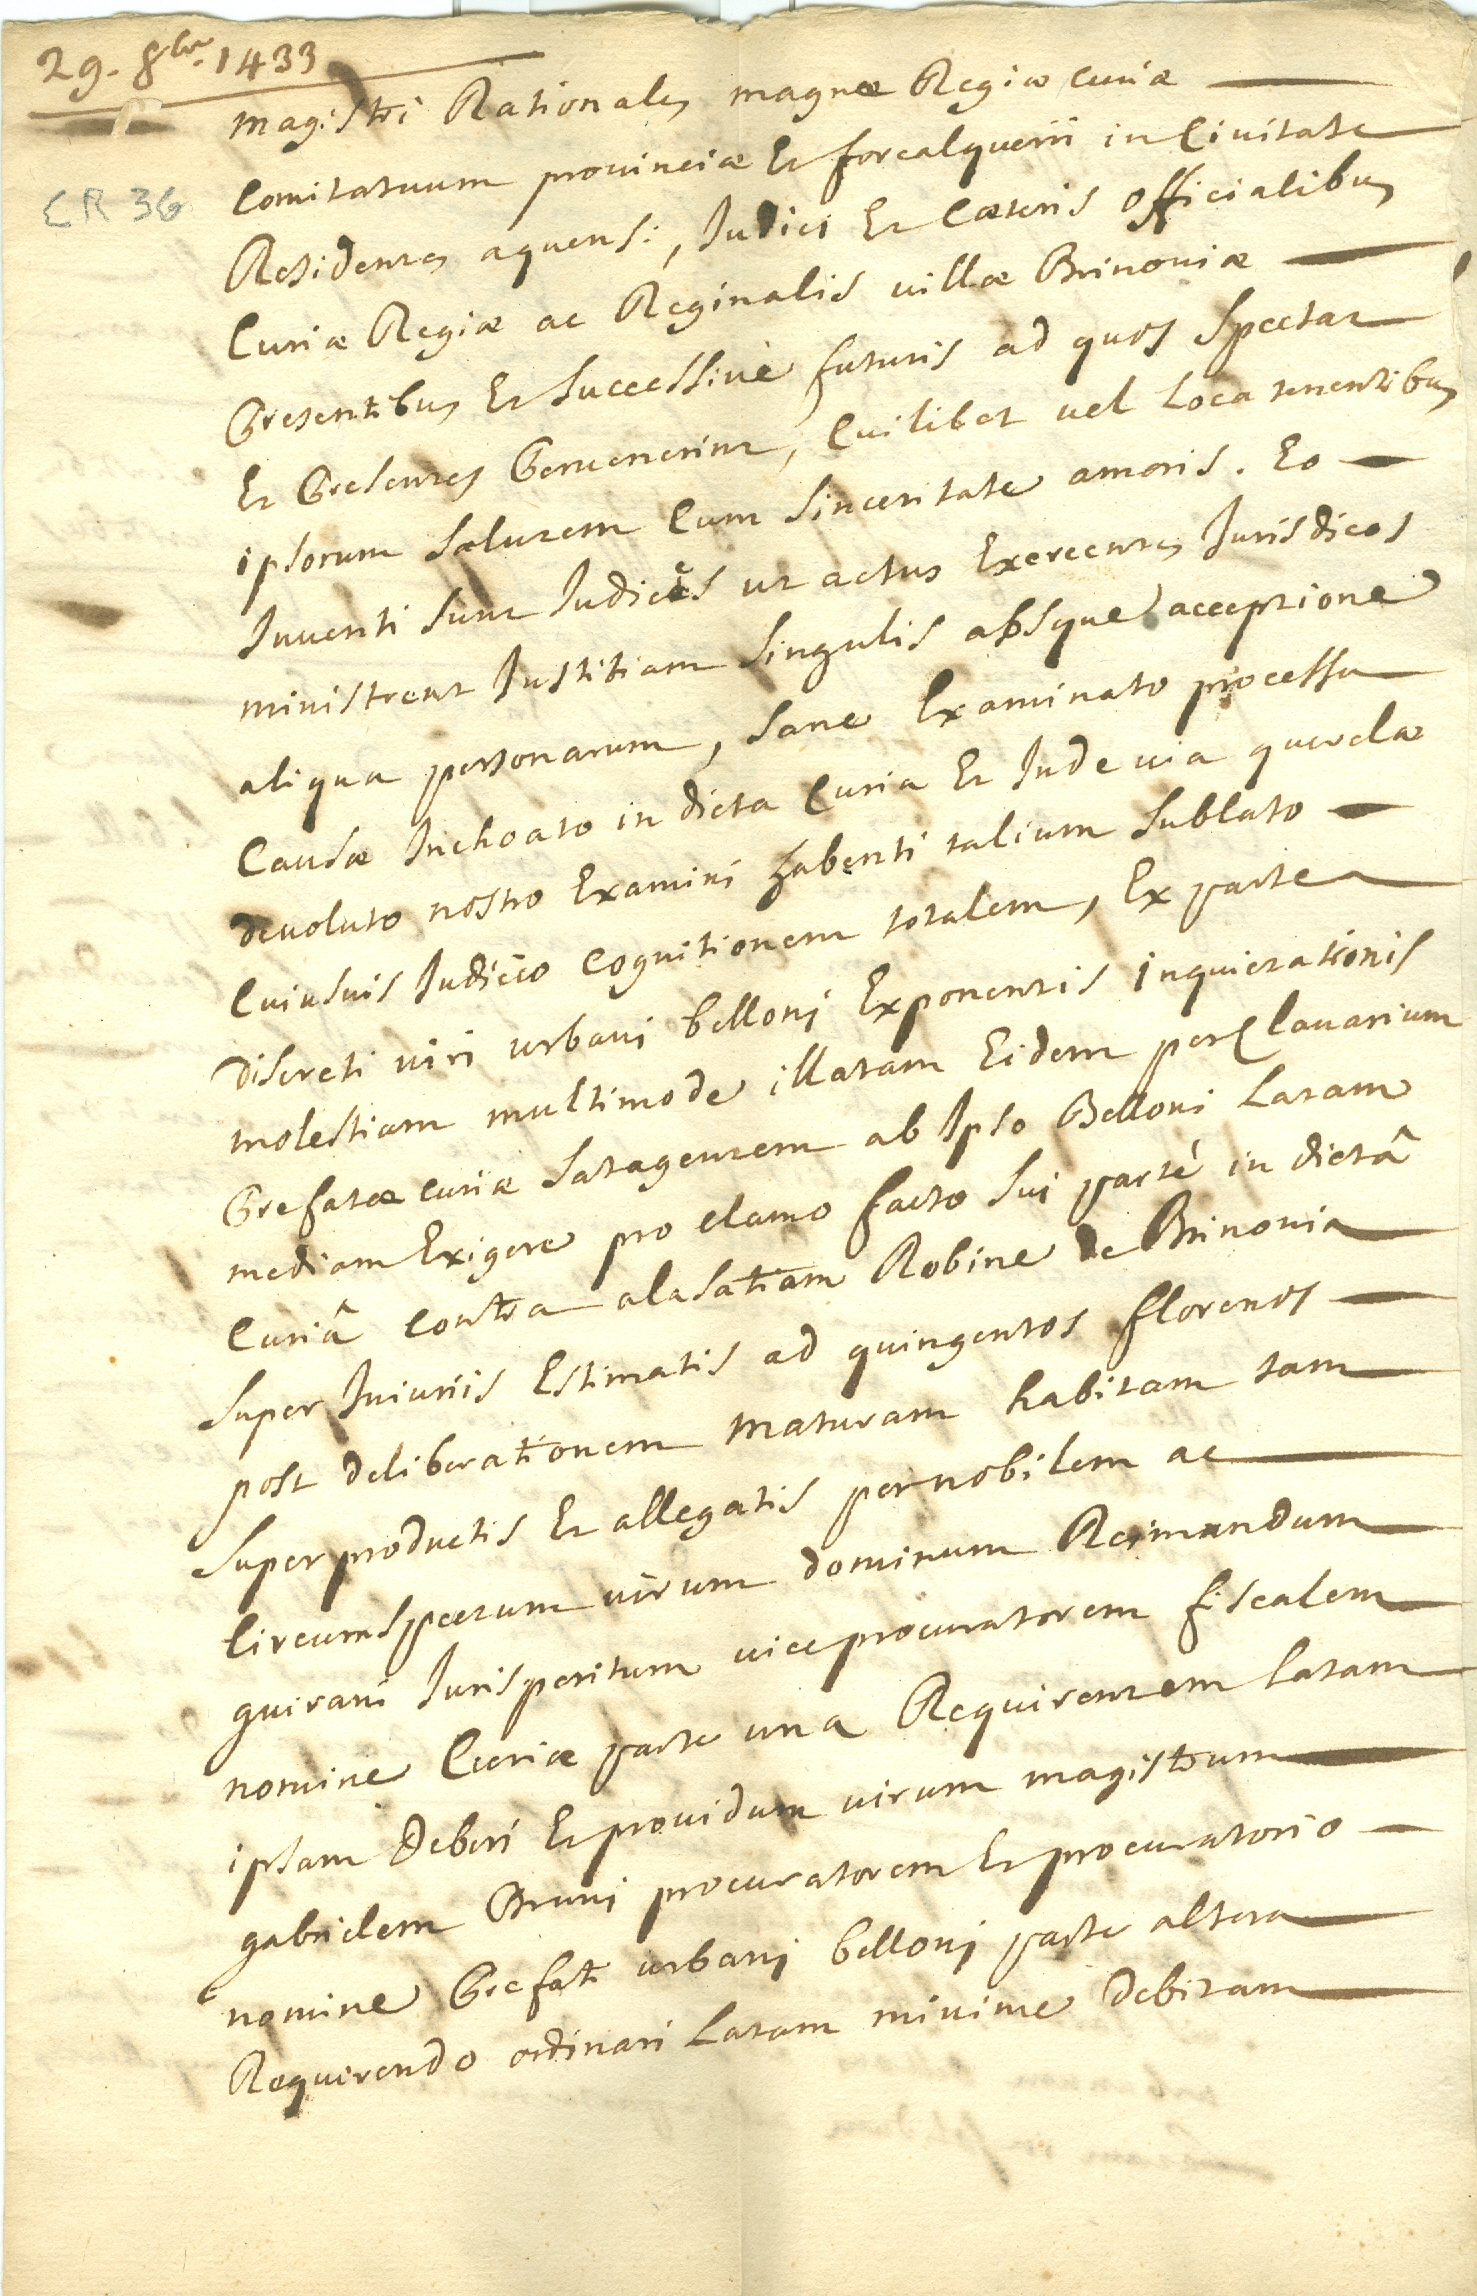 29. 8bre. 1433
CR 36
Magistri Rationales magnæ Regiæ Curiæ
Comitatuum provinciæ Et forcalquerii in Civitate
Residentes aquensi, Iudici Et Cæteris officialibus
Curiæ Regiæ ac Reginalis villæ Brinoniæ
Presentibus Et Successivè futuris ad quos Spectat
Et Presentes Pervenerint, Cuilibet vel Loca tenentibus
ipsorum Salutem Cum Sinceritate amoris. Eo
Inventi Sunt Iudicès ut actus Exercentes Iurisdicos
ministrent Iustitiam Singulis absque acceptione
aliqua personarum, Sane Examinato processu
Causæ Inchoato in dicta Curia Et Inde via querelæ
devoluto nostro Examini habenti talium Sublato
Cuiusvis Iudicio Cognitionem totalem, Ex parte
Discreti viri urbani bellonj Exponentis inquietationis
molestiam multimode illatam Eidem per Clavarium
Prefatæ curiæ Satagentem ab Ipso Belloni Latam
mediam Exigere pro clamo facto Sui parté in dictâ
Curiâ contra alasatiam Robine de Brinonia
Super Iniuriis Estimatis ad quingentos florenos
post deliberationem maturam habitam tam
Super productis Et allegatis per nobilem ac
Circumspectum virum dominum Reimundum
guirani Iurisperitum viceprocuratorem fiscalem
nomine Curiæ parte una Requirentem Latam
ipsam Deberi Et providum virum magistrum
gabrielem Brunj procuratorem Et procuratorio
nomine Prefati urbanj bellonj parte altera
Requirendo ordinari Latam minime Debitam